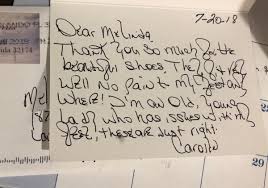 7-20-18
Dear Melinda,
Thank you so much for the
beautiful shoes. They fit very
well no pain to my feet any
where! I'm an old, young
lady who has issues with my
feet, these are just right.
Carolyn
32174
Mel
29